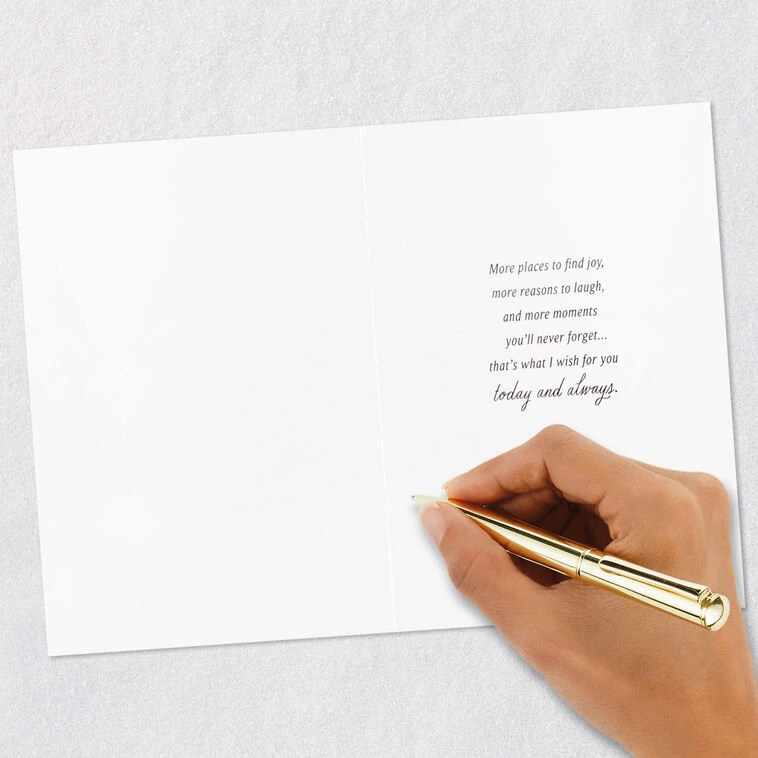 More places to find joy,
more reasons to laugh,
and more moments
you'll never forget...
that's what I wish for you
today and always.